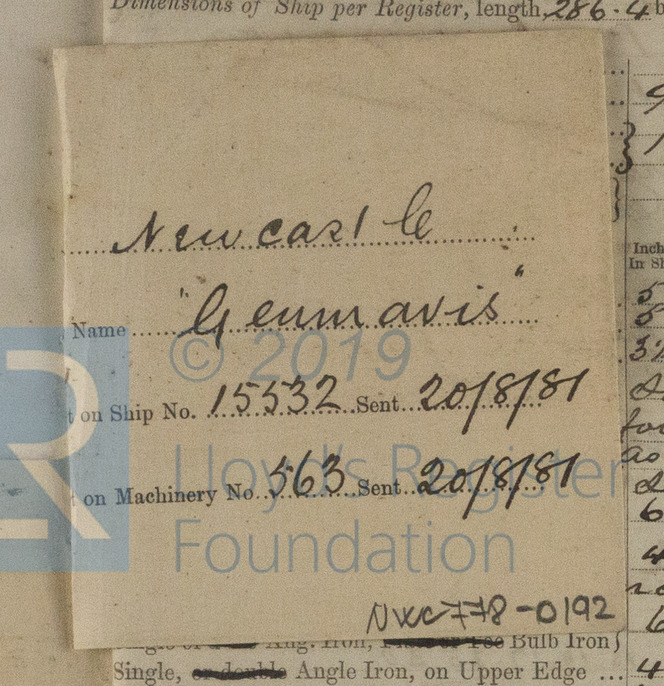 Dimensions of Ship per Register, length, 286.4 b
Newcastle
Name "Glenmavis"
t on Ship No. 15532 Sent 20/8/81
t on Machinery No. 563 Sent 20/8/81
© 2019
Lloyd's Register
Foundation
NWC778-0192
Ang. Iron, Bulb Iron
Single, or double Angle Iron, on Upper Edge ... 4
Inch
In Sh
5
5
for
as
6
6